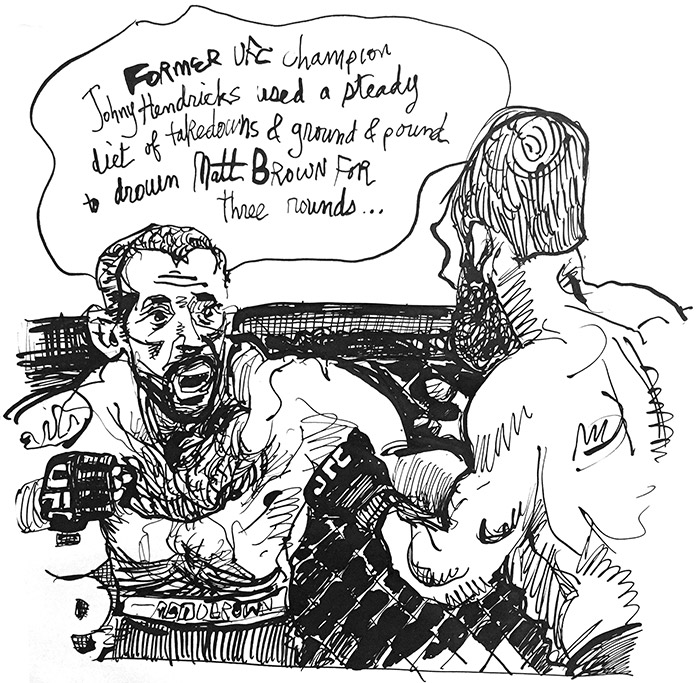 FORMER UFC champion
Johny Hendricks used a steady
diet of takedowns & ground & pound
to drown Matt BROWN FOR
three rounds...
UFC